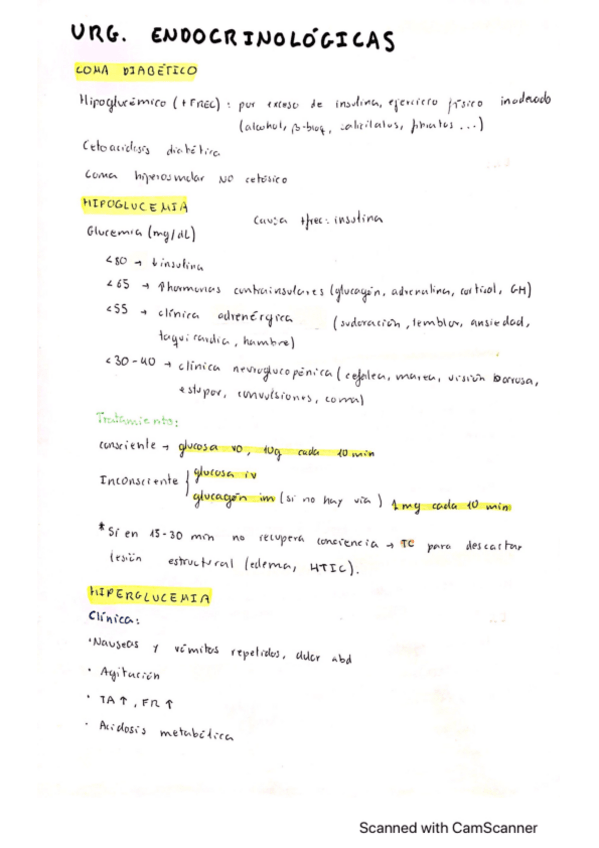 URG. ENDOCRINOLÓGICAS
COMA DIABÉTICO
Hipoglucémico (+FREC) : por exceso de insulina, ejercicio físico inadecuado
(alcohol, β-bloq, salicilatos, fibratos ...)
Cetoacidosis diabética
Coma hiperosmolar NO cetósico
HIPOGLUCEMIA
Causa +frec: insulina
Glucemia (mg/dL)
<80 → ↓insulina
<65 → ↑hormonas contrainsulares (glucagón, adrenalina, cortisol, GH)
<55 → clínica adrenérgica (sudoración, temblor, ansiedad,
taquicardia, hambre)
<30-40 → clínica neuroglucopénica (cefalea, mareo, visión borrosa,
estupor, convulsiones, coma)
Tratamiento:
consciente → glucosa vo, 10g cada 10 min
Inconsciente { glucosa iv
glucagón im (si no hay vía) 1 mg cada 10 min
*Si en 15-30 min no recupera conciencia → TC para descartar
lesión estructural (edema, HTIC).
HIPERGLUCEMIA
Clínica:
· Nauseas y vómitos repetidos, dolor abd
· Agitación
· TA ↑, FR ↑
· Acidosis metabólica
Scanned with CamScanner